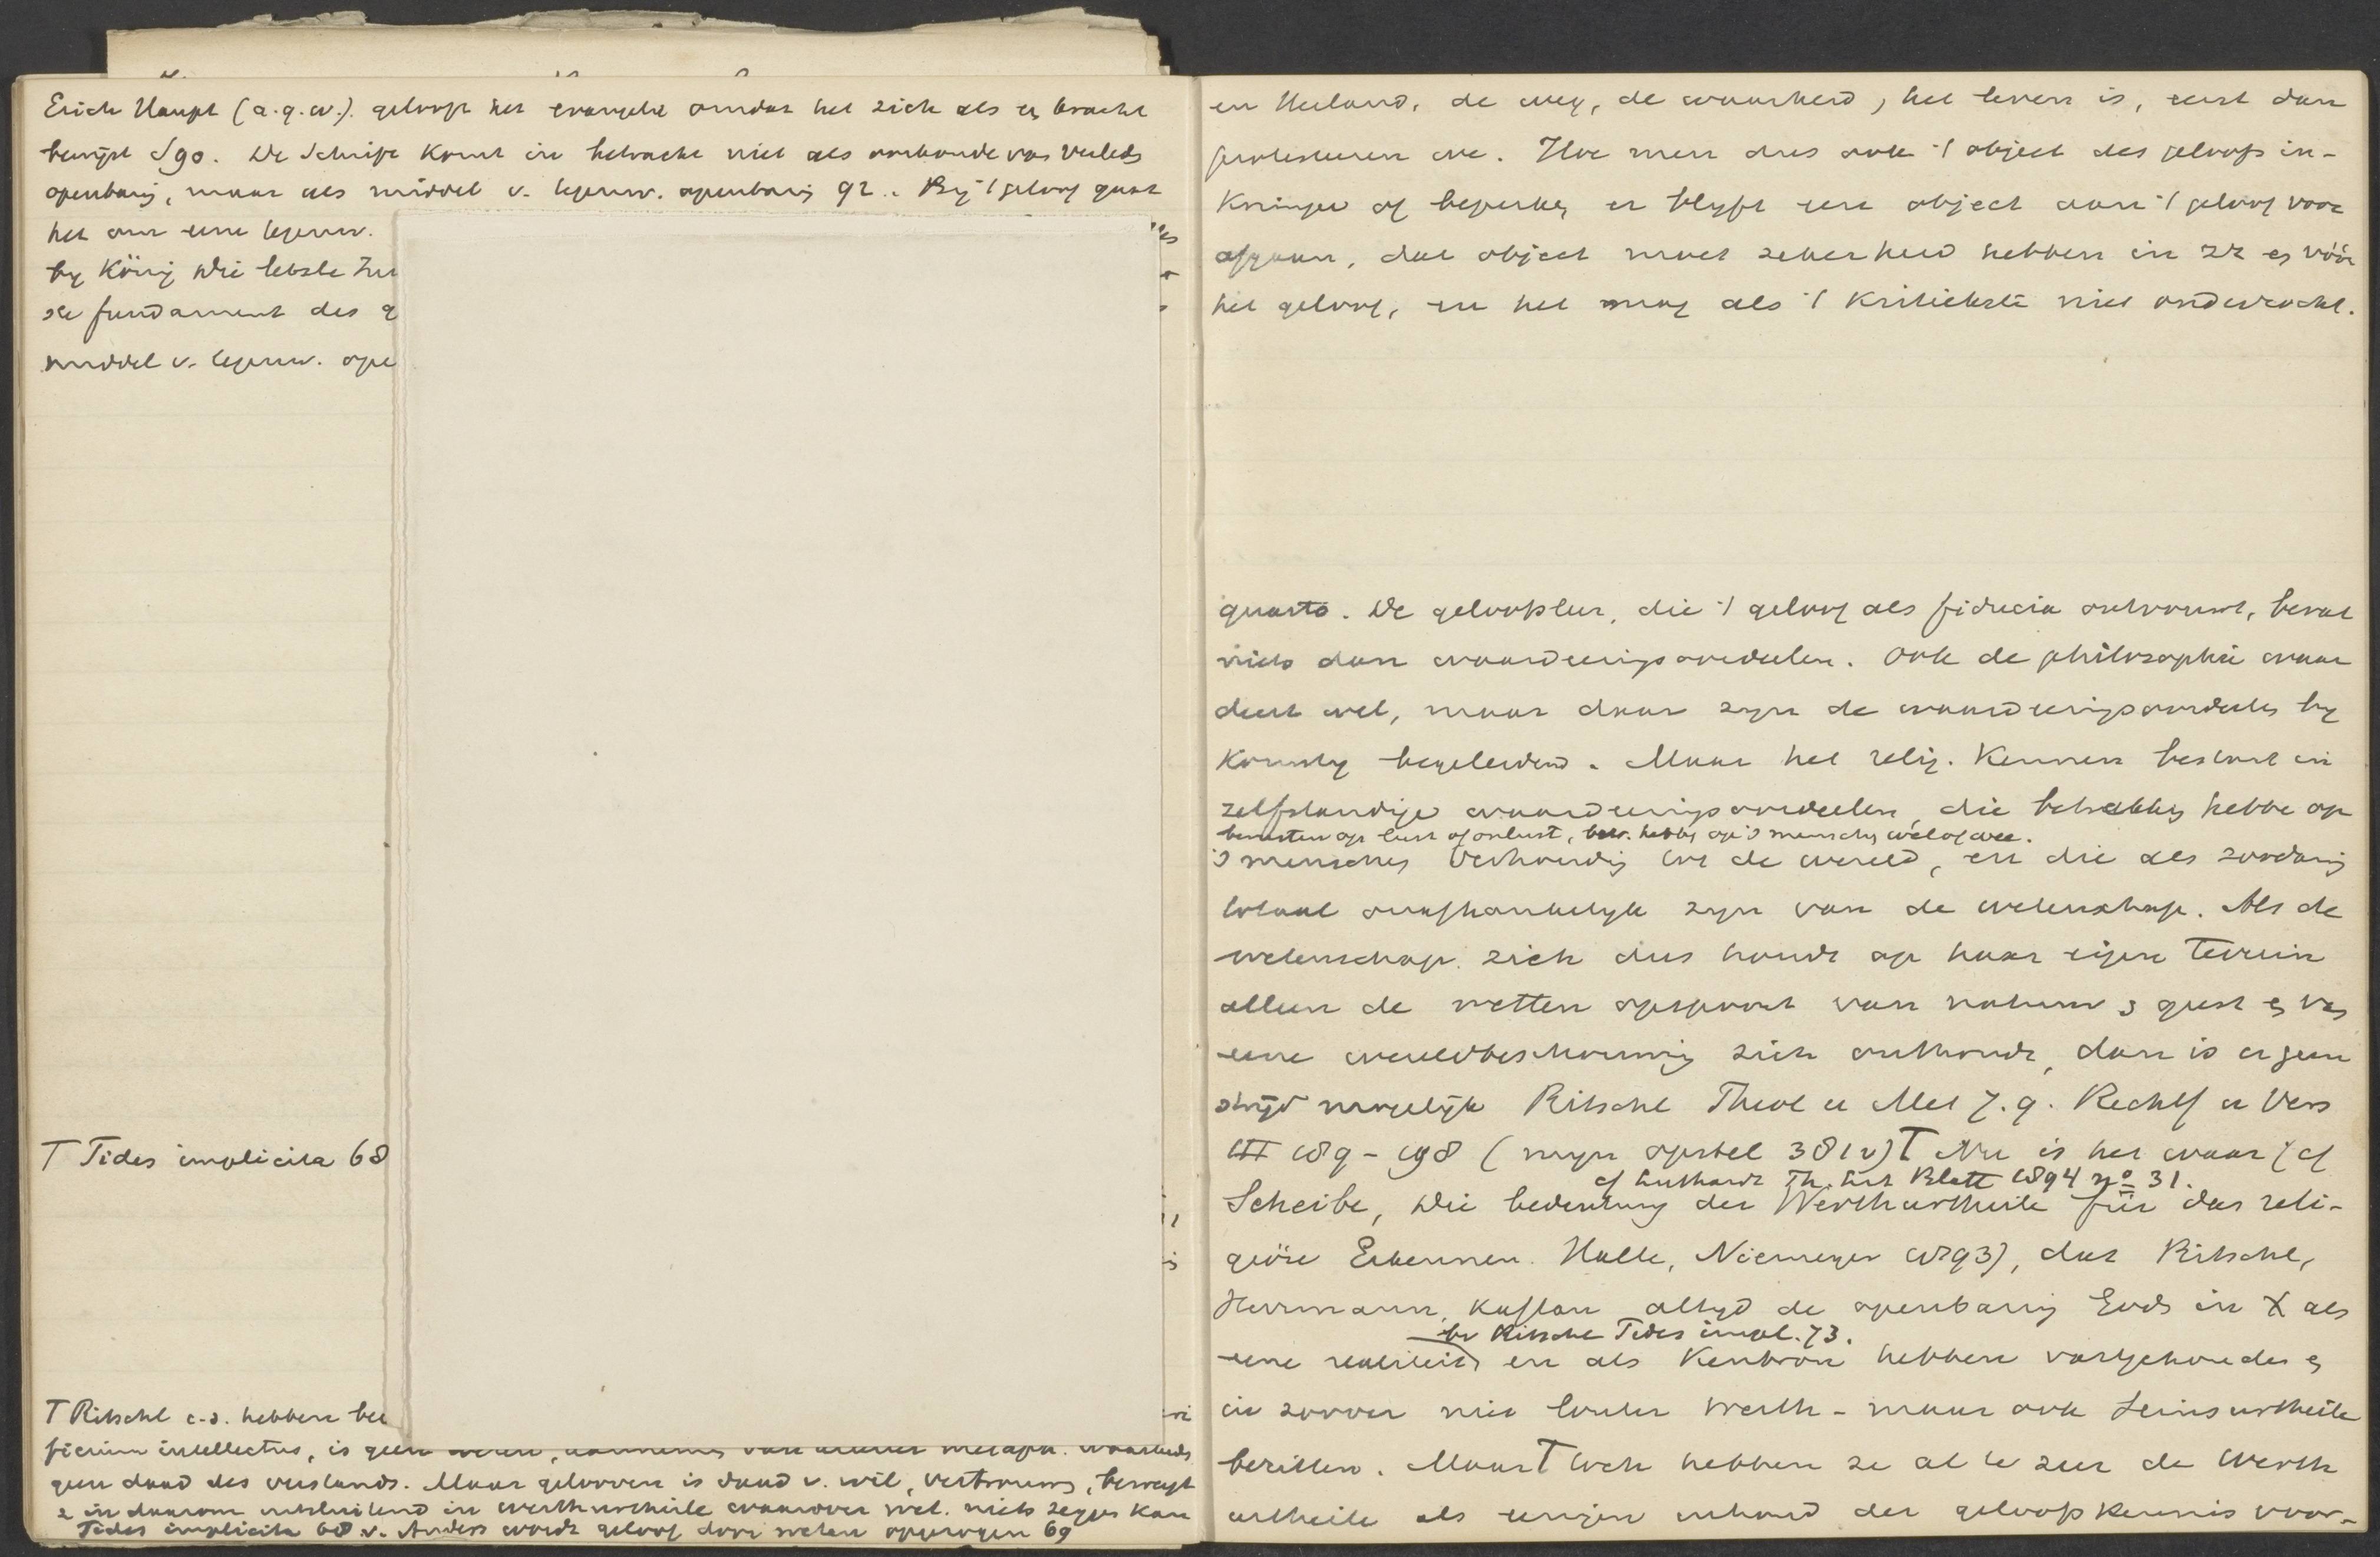 Erich Haupt (a.q.w.). gelooft het evangelie omdat het zich als een kracht
bewijst S 90. De Schrift komt in betracht niet als oorkonde van verleden
openbaring, maar als middel v. tegenw. openbaring 92. Bij 't geloof gaat
het om eene tegenw.
by König Die letzte
fundament des g
middel v. tegenw. ope
T Fides implicita 68
T Ritschl c.s. hebben be
ficium intellectus, is geen weten, aannemen van allerlei metaph. waarheden
geen daad des verstands. Maar gelooven is daad v. wil, vertrouwen, beweegt
z. in daarom uitsluitend in werthurtheile waarover wet. niets zeggen kan
Fides implicita 68 v. Anders wordt geloof door weten opgewogen 69
en Heiland, de weg, de waarheid, het leven is, eerst dan
protesteeren we. Hoe men dus ook 't object des geloofs in-
krimpe of beperke, er blijft een object aan 't geloof voor
afgaan, dat object moet zekerheid hebben in zich en vóór
het geloof, en het mag als 't kritiekste niet onderzocht.
quarto. De geloofsleer, die 't geloof als fiducia ontvouwt, bevat
niets dan waardeeringsoordeelen. Ook de philosophie waar
deert wel, maar daar zijn de waardeeringsoordeelen by
komstig begeleidend. Maar het relig. kennen bestaat in
zelfstandige waardeeringsoordeelen, die betrekking hebben op
berusten op lust of onlust, betr. hebben op 's menschen wel of wee.
's menschen verhouding tot de wereld, en die als zoodanig
totaal onafhankelyk zyn van de wetenschap. Als de
wetenschap zich dus houdt op haar eigen terrein
alleen de wetten opspoort van natuur & geest en van
eene wereldbeschouwing zich onthoudt, dan is er geen
strijd mogelijk Ritschl Theol u Met 7. 9. Rechtf u Vers
III 189-198 (mijn opstel 381 v) T Nu is het waar (cf
cf Luthardt Th. Lit Blatt 1894 no 31.
Scheibe, Die Bedeutung der Werthurtheile für das reli-
giöse Erkennen. Halle, Niemeyer 1893), dat Ritschl,
Herrmann, Kaftan altyd de openbaring Gods in X als
bv Ritschl Fides impl. 73.
eene realiteit en als kenbron hebben vastgehouden en
in zoover niet louter Werth- maar ook Seinsurtheile
bezitten. Maar T toch hebben ze al te zeer de Werth
urtheile als eenigen inhoud der geloofskennis voor-